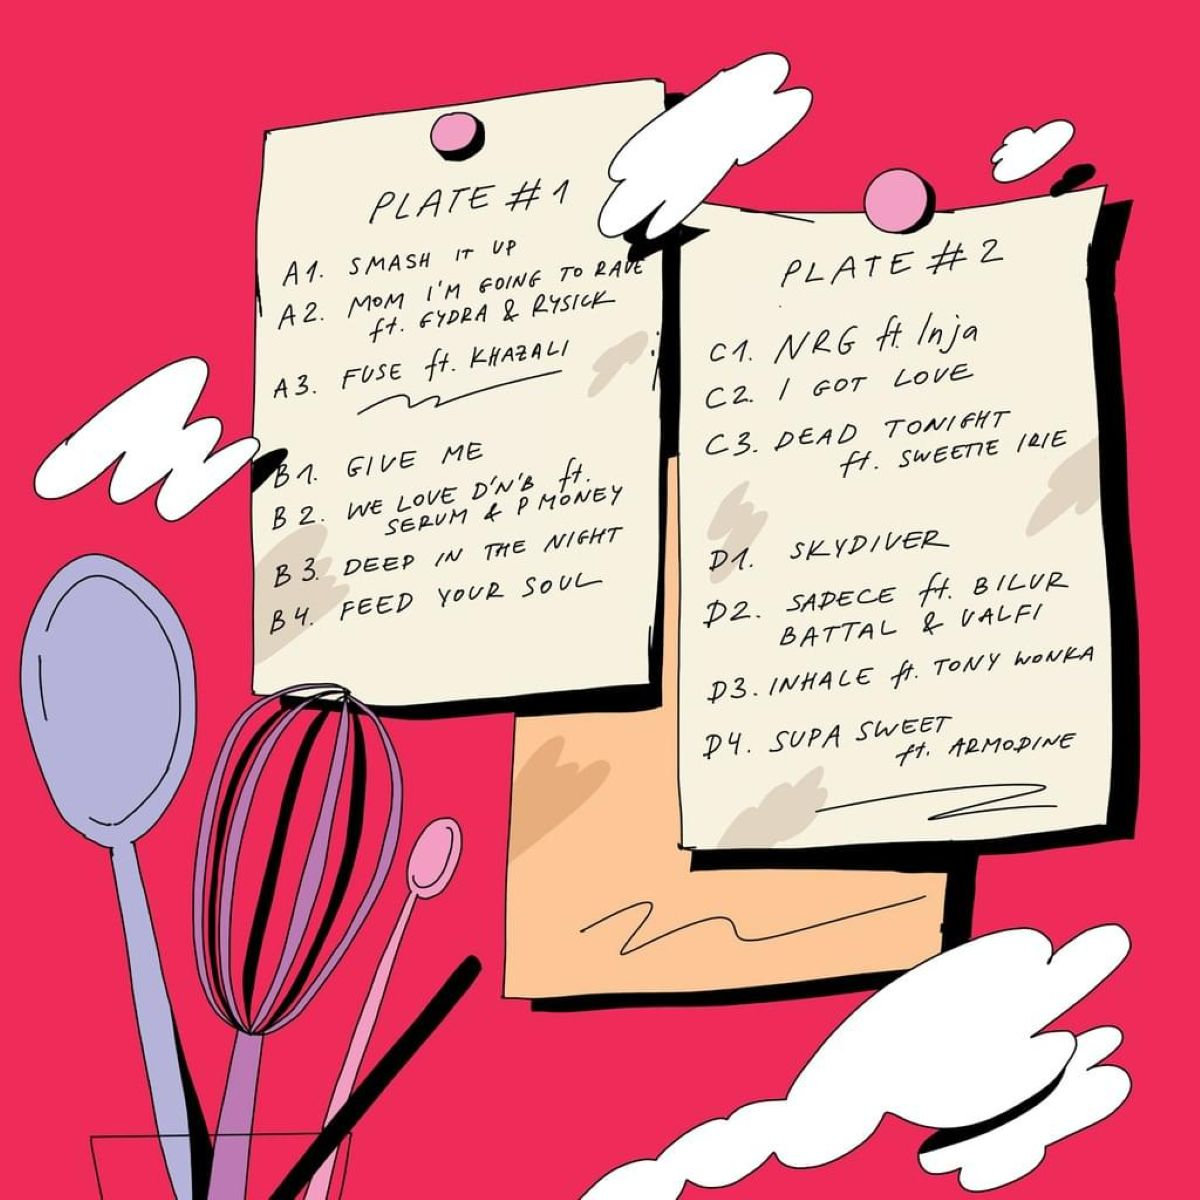 PLATE #1
A1. SMASH IT UP
A2. MOM I'M GOING TO RAVE
ft. GYDRA & RYSICK
A3. FUSE ft. KHAZALI
B1. GIVE ME
B2. WE LOVE D'N'B ft.
SERUM & P MONEY
B3. DEEP IN THE NIGHT
B4. FEED YOUR SOUL
PLATE #2
C1. NRG ft. Inja
C2. I GOT LOVE
C3. DEAD TONIGHT
ft. SWEETIE IRIE
D1. SKYDIVER
D2. SADECE ft. BILUR
BATTAL & VALFI
D3. INHALE ft. TONY WONKA
D4. SUPA SWEET
ft. ARMODINE